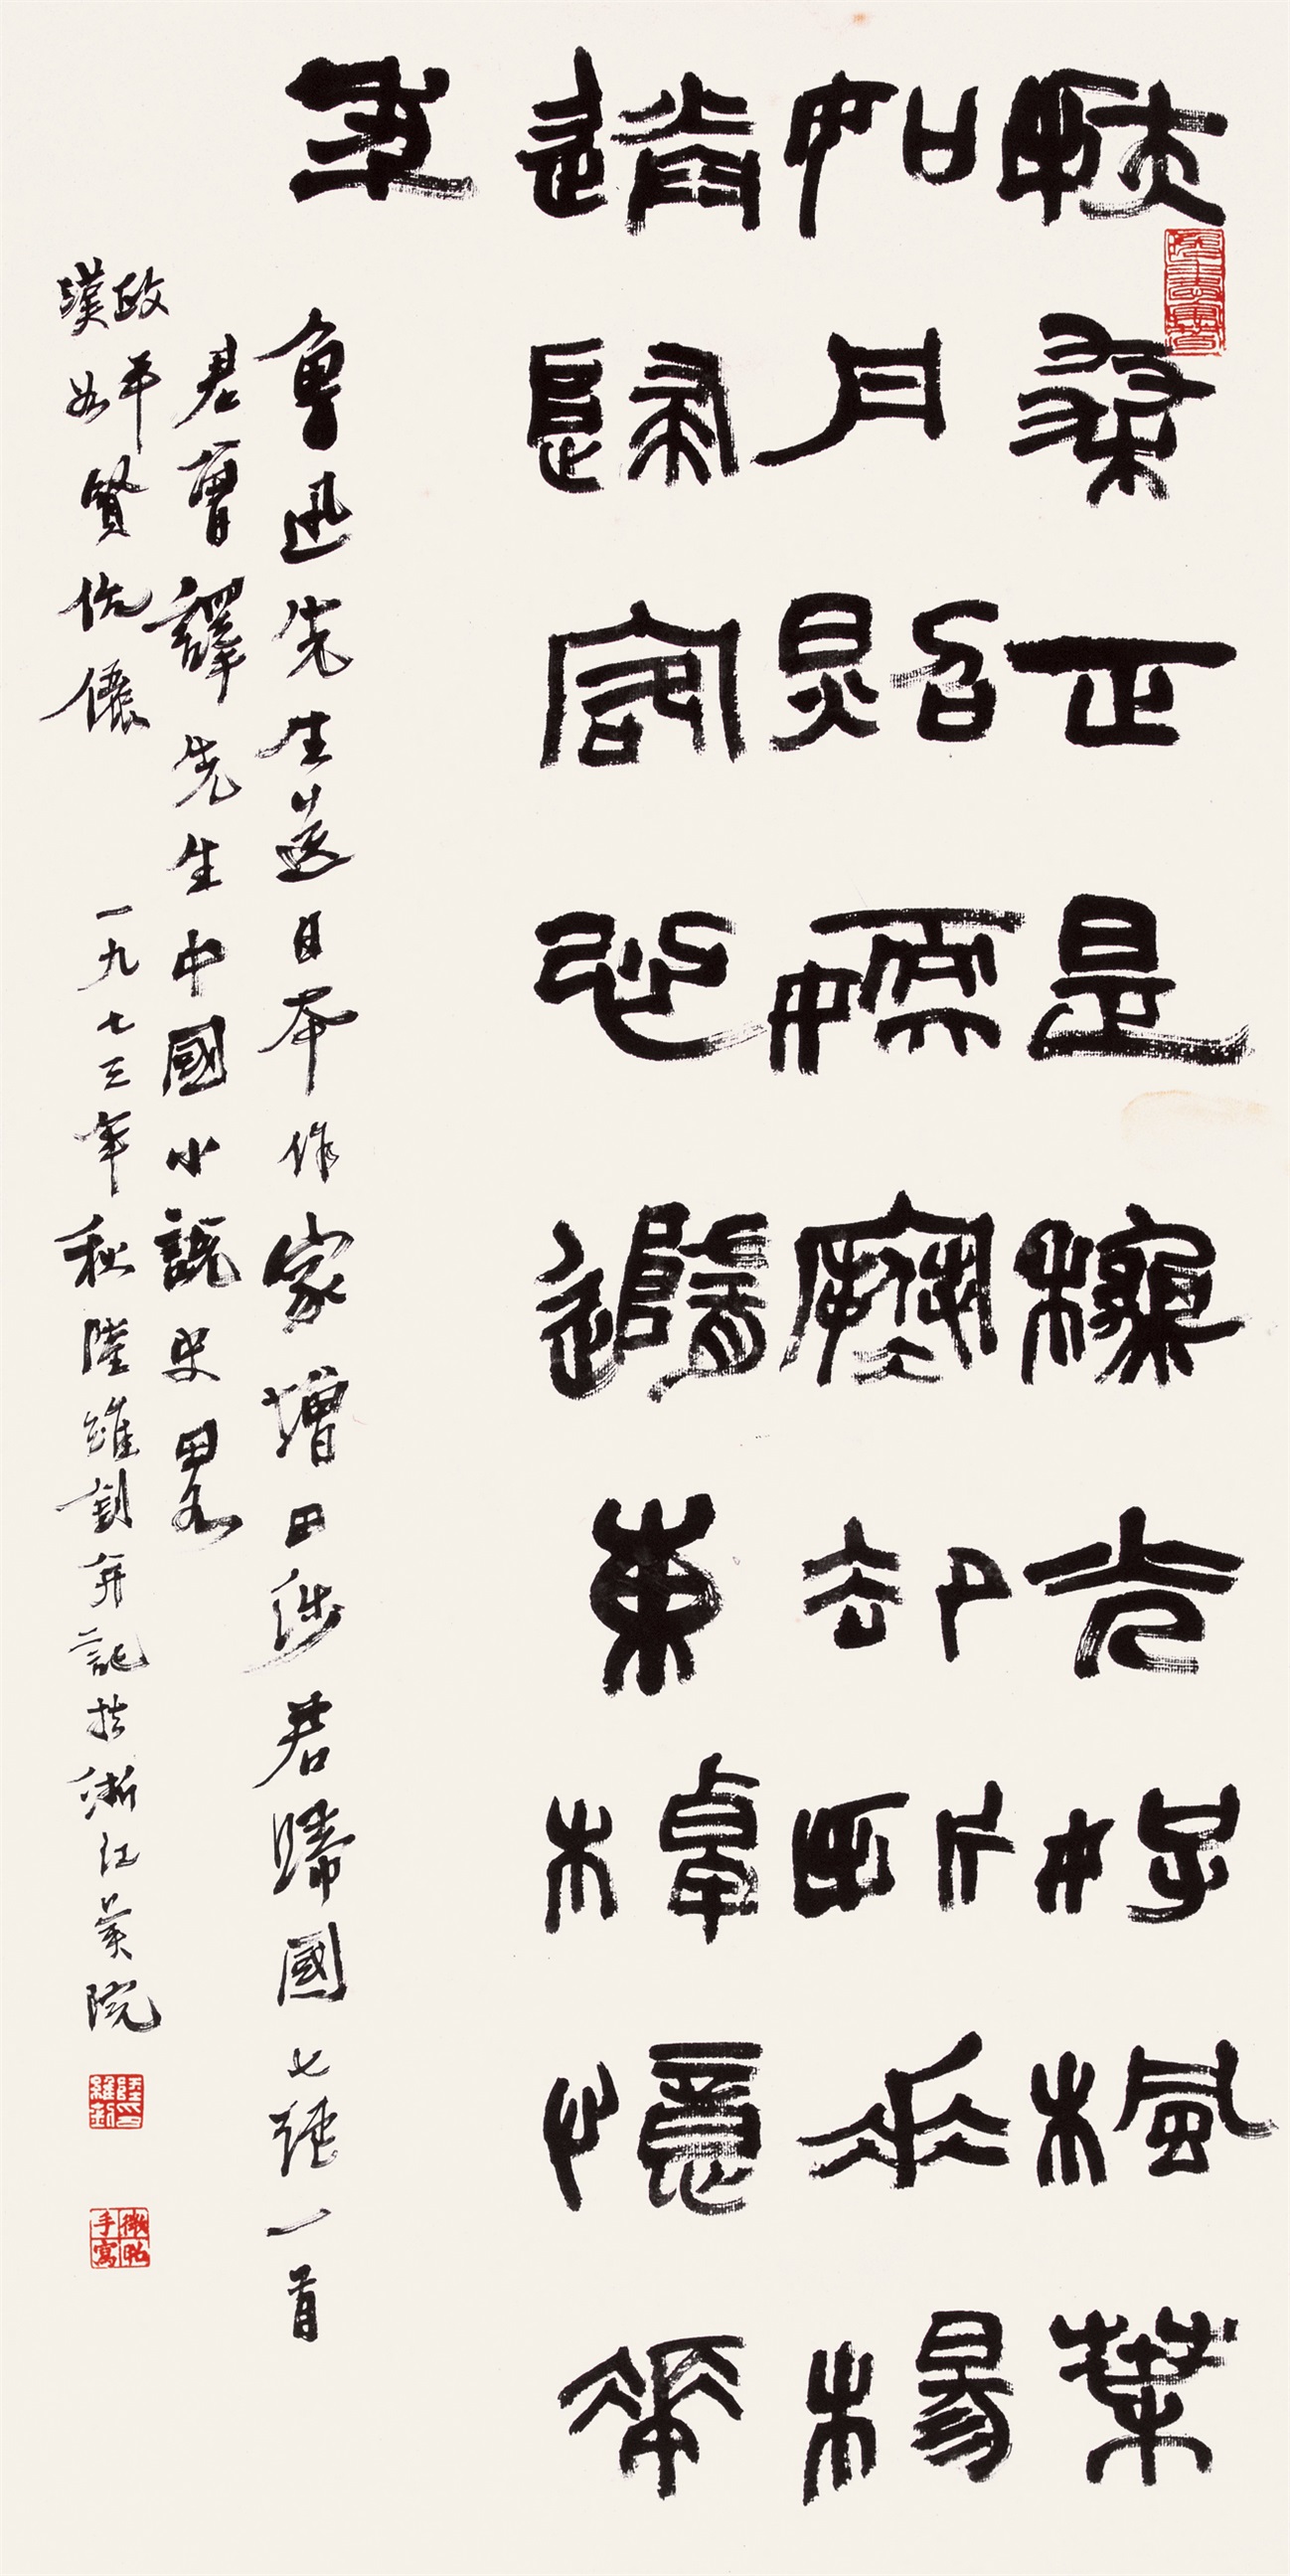 扶桑正是秋光好楓葉
如丹照嫩寒却折垂楊
送歸客心隨東棹憶華
年
魯迅先生送日本作家增田涉君歸國七絕一首
君曾譯先生中國小說史畧
政平
漢如賢伉儷 一九七三年秋陸維釗并記於浙江美院
陸維釗印
微昭手寫